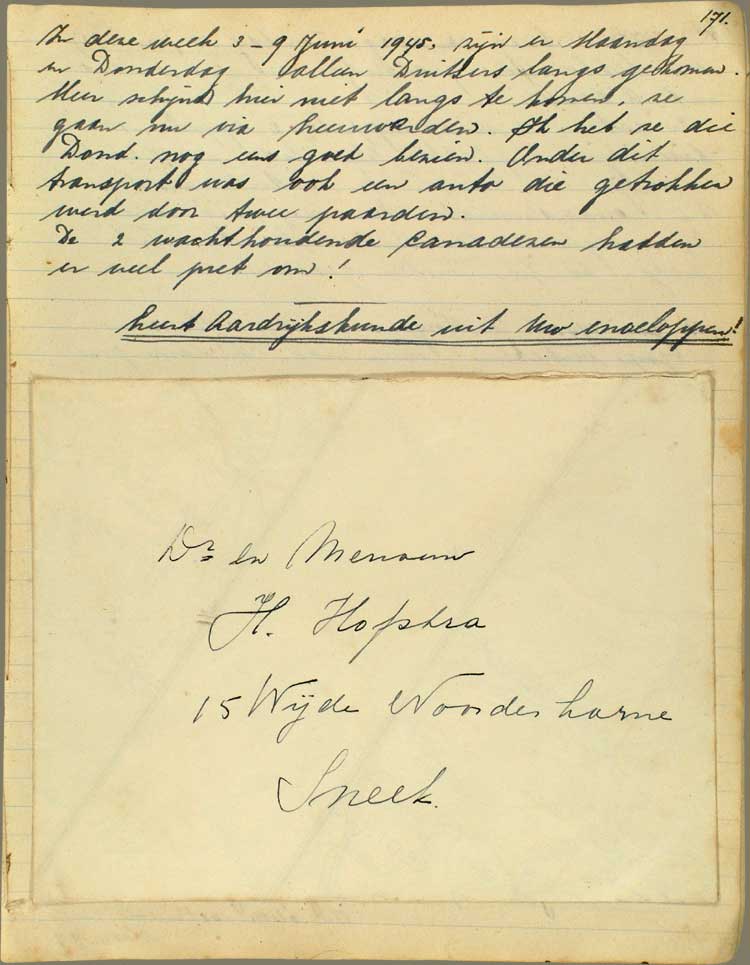 171.
In deze week 3 – 9 Juni 1945. zijn er Maandag
en Donderdag alleen Duitsers langs gekomen.
Meer schijnt hier niet langs te komen, ze
gaan nu via Leeuwarden. Ik heb ze die
Dond. nog eens goed bezien. Onder dit
transport was ook een auto die getrokken
werd door twee paarden.
De 2 wachthoudende Canadezen hadden
er veel pret om!
Leert Aardrijkskunde uit Uw enveloppen!
Dr en Mevrouw
H. Hofstra
15 Wijde Noorderhorne
Sneek.